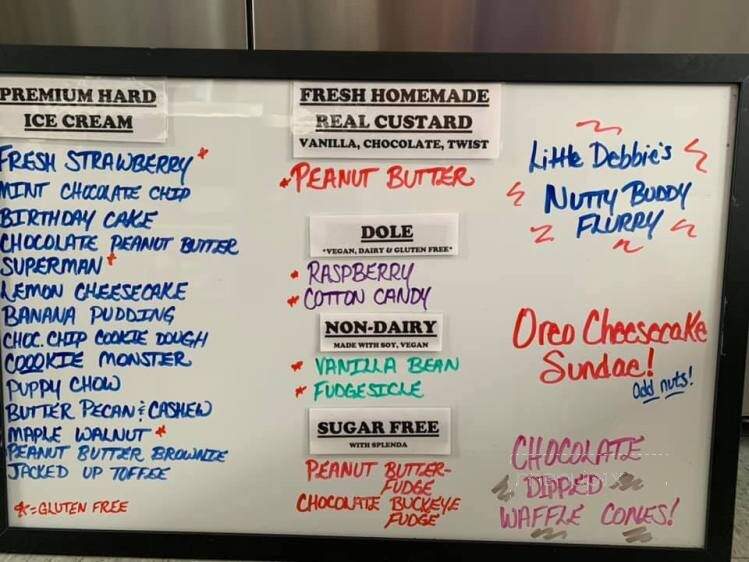 PREMIUM HARD
ICE CREAM
FRESH STRAWBERRY *
MINT CHOCOLATE CHIP
BIRTHDAY CAKE
CHOCOLATE PEANUT BUTTER
SUPERMAN *
LEMON CHEESECAKE
BANANA PUDDING
CHOC. CHIP COOKIE DOUGH
COOOKIE MONSTER
PUPPY CHOW
BUTTER PECAN & CASHEW
MAPLE WALNUT *
PEANUT BUTTER BROWNIE
JACKED UP TOFFEE
* = GLUTEN FREE
FRESH HOMEMADE
REAL CUSTARD
VANILLA, CHOCOLATE, TWIST
* PEANUT BUTTER
DOLE
*VEGAN, DAIRY & GLUTEN FREE*
* RASPBERRY
* COTTON CANDY
NON-DAIRY
MADE WITH SOY, VEGAN
* VANILLA BEAN
* FUDGESICLE
SUGAR FREE
WITH SPLENDA
PEANUT BUTTER-
FUDGE
CHOCOLATE BUCKEYE
FUDGE
Little Debbie's
NUTTY BUDDY
FLURRY
Oreo Cheesecake
Sundae!
Odd nuts!
CHOCOLATE
DIPPED
WAFFLE CONES!